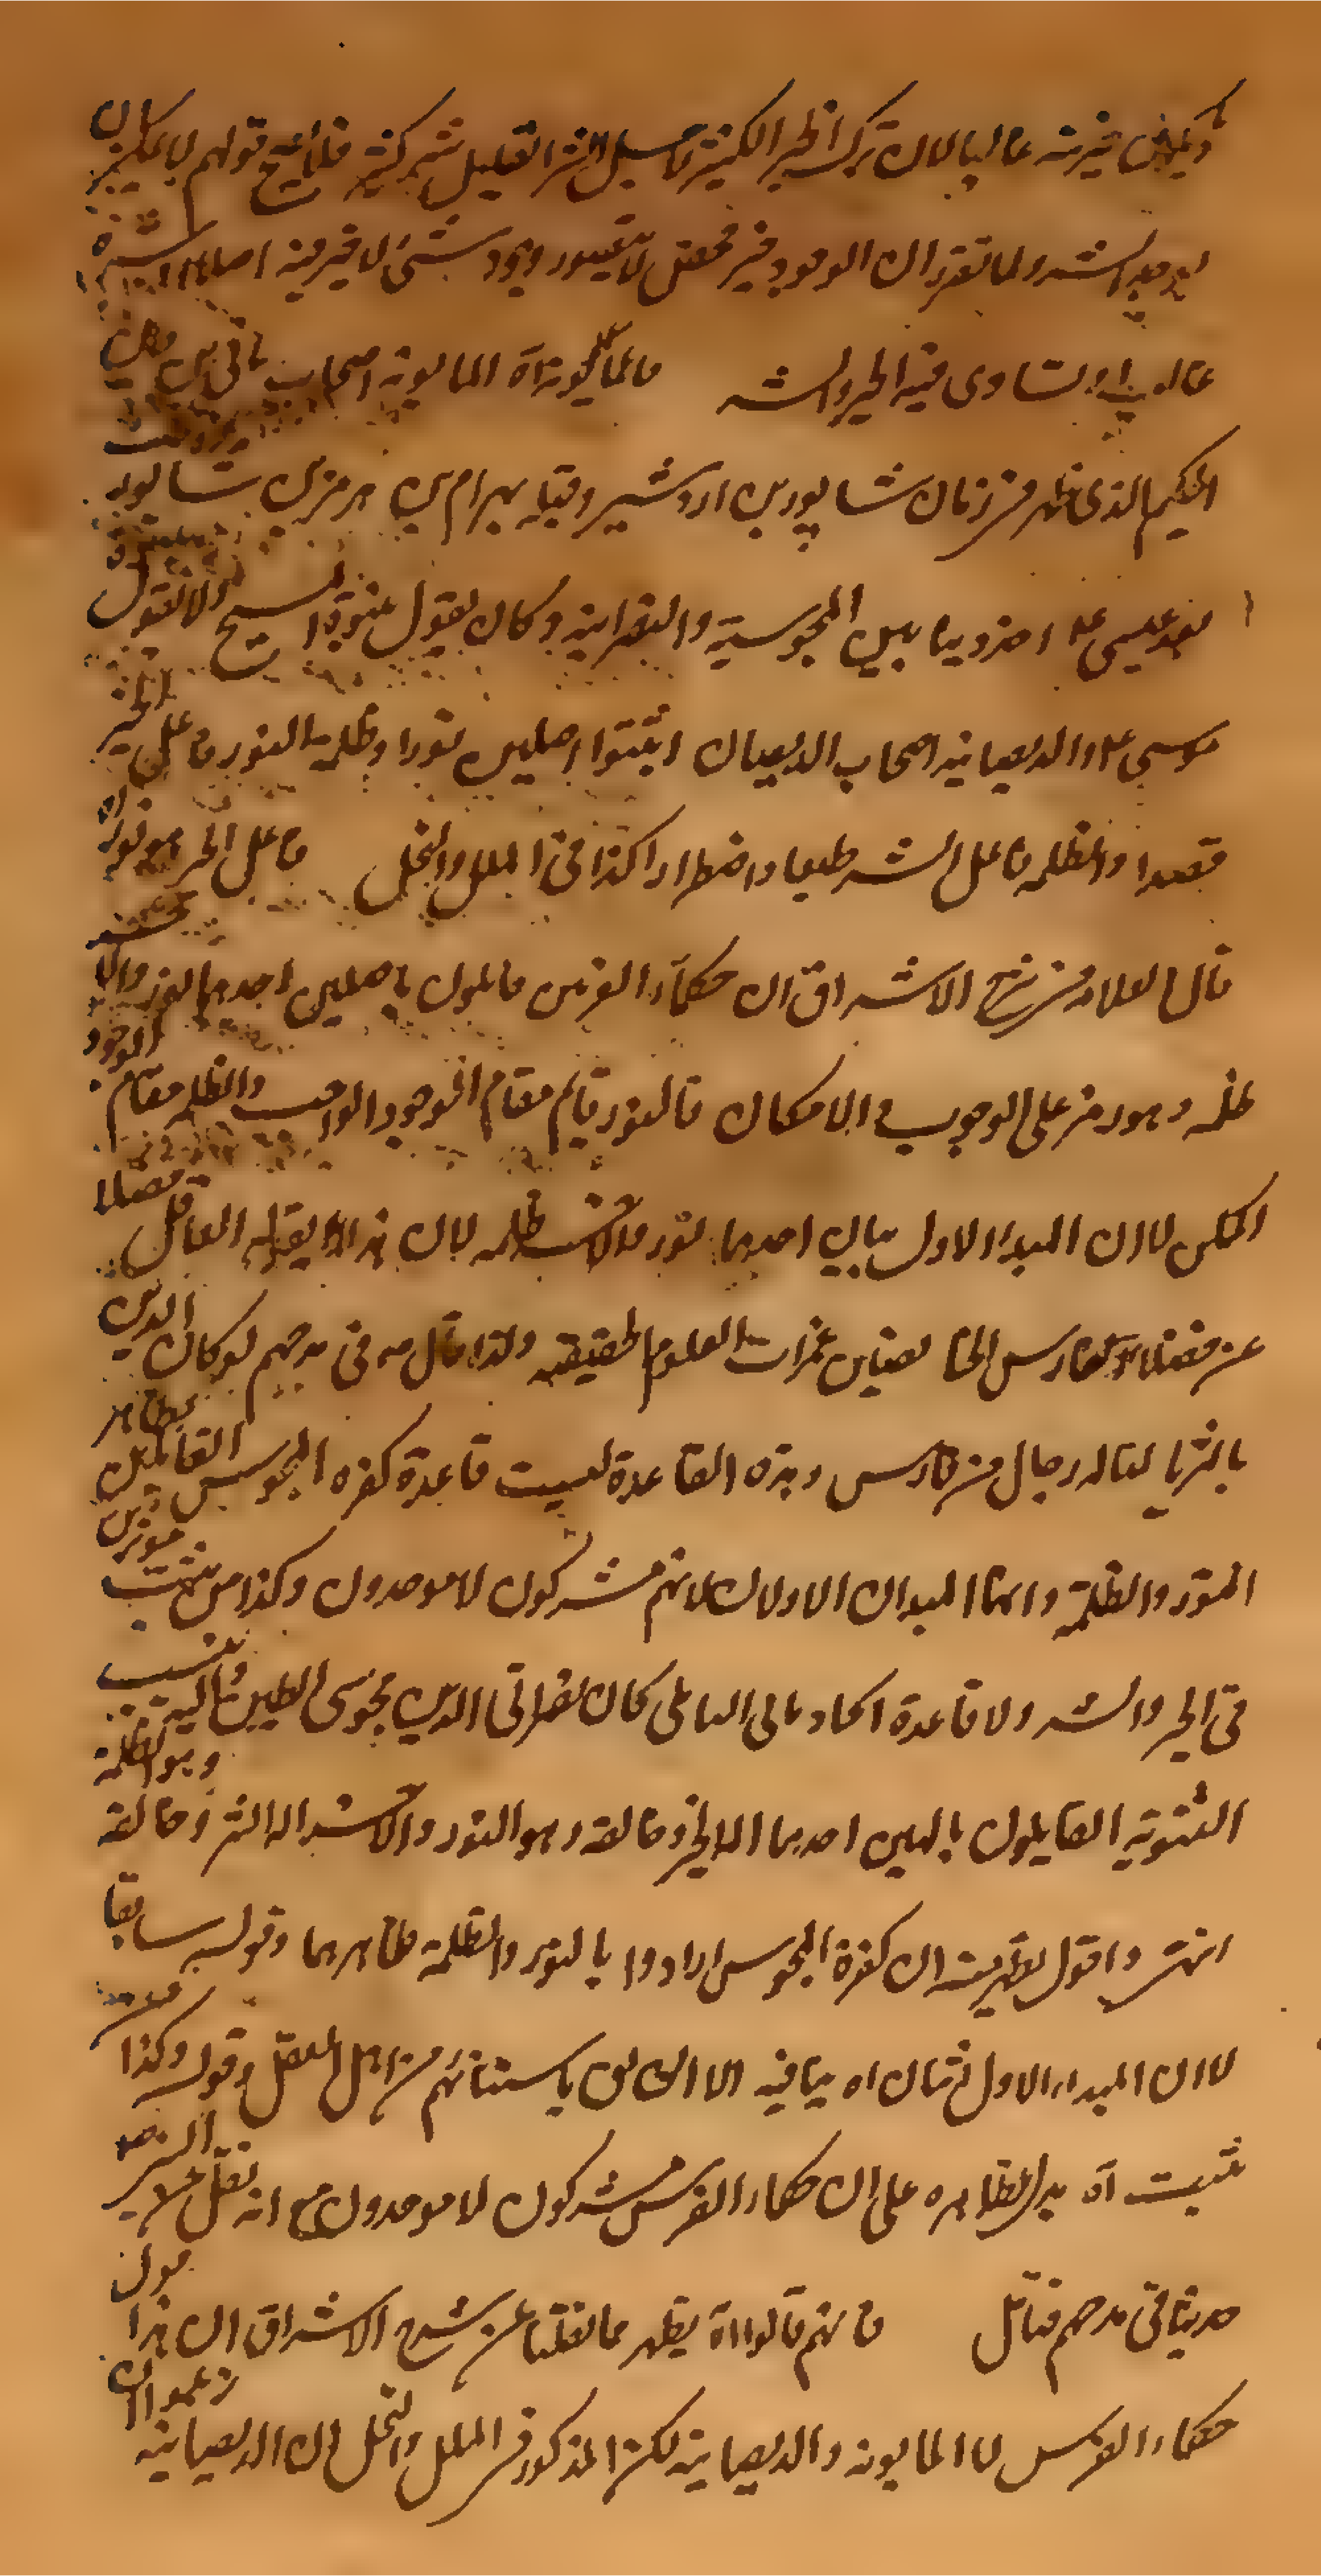 وتكون خيريته غالبا لان ترك الخير الكثير لاجل الشر القليل شر كثير فلا يصح قولهم لا يمكن ان
يوجد الشر ولما تقرر ان الوجود خير محض لا يتصور وجود شيء لا خير فيه اصلا
غالب او يتساوى فيه الخير والشر فالمانوية اه المانوية اصحاب ماني بن فاتن
الحكيم الذي ظهر في زمان شاپور بن اردشير وقتله بهرام بن هرمز بن شاپور
بعد عيسى ع م اخذ دينا بين المجوسية والنصرانية وكان يقول بنبوة المسيح ولا يقول بنبوة
موسى ع م والديصانية اصحاب الديصان اثبتوا اصلين نورا وظلمة النور فاعل الخير
قصدا والظلمة فاعل الشر طبعا واضطرارا كذا في الملل والنحل فاعل الخير هو نور اه
قال العلامة في شرح الاشراق ان حكماء الفرس قائلون باصلين احدهما نور والآخر
ظلمة وهو رمز على الوجوب والامكان فالنور قايم مقام الوجود الواجب والظلمة مقام الوجود
الممكن لا ان المبدأ الاول احدهما نور والآخر ظلمة لان هذا لا يقوله العاقل فضلا
عن فضلاء فارس العلوم الحقيقية ولذا قال في مدحهم لو كان الدين
بالثريا لناله رجال من فارس وهذه القاعدة ليست قاعدة كفرة المجوس القائلين بظاهر
النور والظلمة وانهما المبدآن الاولان لانهم مشركون لا موحدون وكذا من يثبت مؤثرين
في الخير والشر ولا قاعدة الحاد ماني البابلي كان نصراني الدين مجوسي الطين واليه ينسب
الثنوية القايلون بالهين احدهما اله الخير وخالقه وهو النور والآخر اله الشر وخالقه وهو الظلمة
انتهى واقول بقرينة ان كفرة المجوس ارادوا بالنور والظلمة ظاهرهما وقوله سابقا
لا ان المبدأ الاول اثنان اه ينافيه من اهل العقل وقوله وكذا من
يثبت اه يدل بظاهره على ان حكماء الفرس مشركون لا موحدون مع انه نقل عن النبي ص
حديثا في مدحهم فتأمل فانهم قالوا اه يظهر مما نقلنا عن شرح الاشراق ان هذا قول
حكماء الفرس لا المانوية والديصانية لكن المذكور في الملل والنحل ان الديصانية زعموا ان